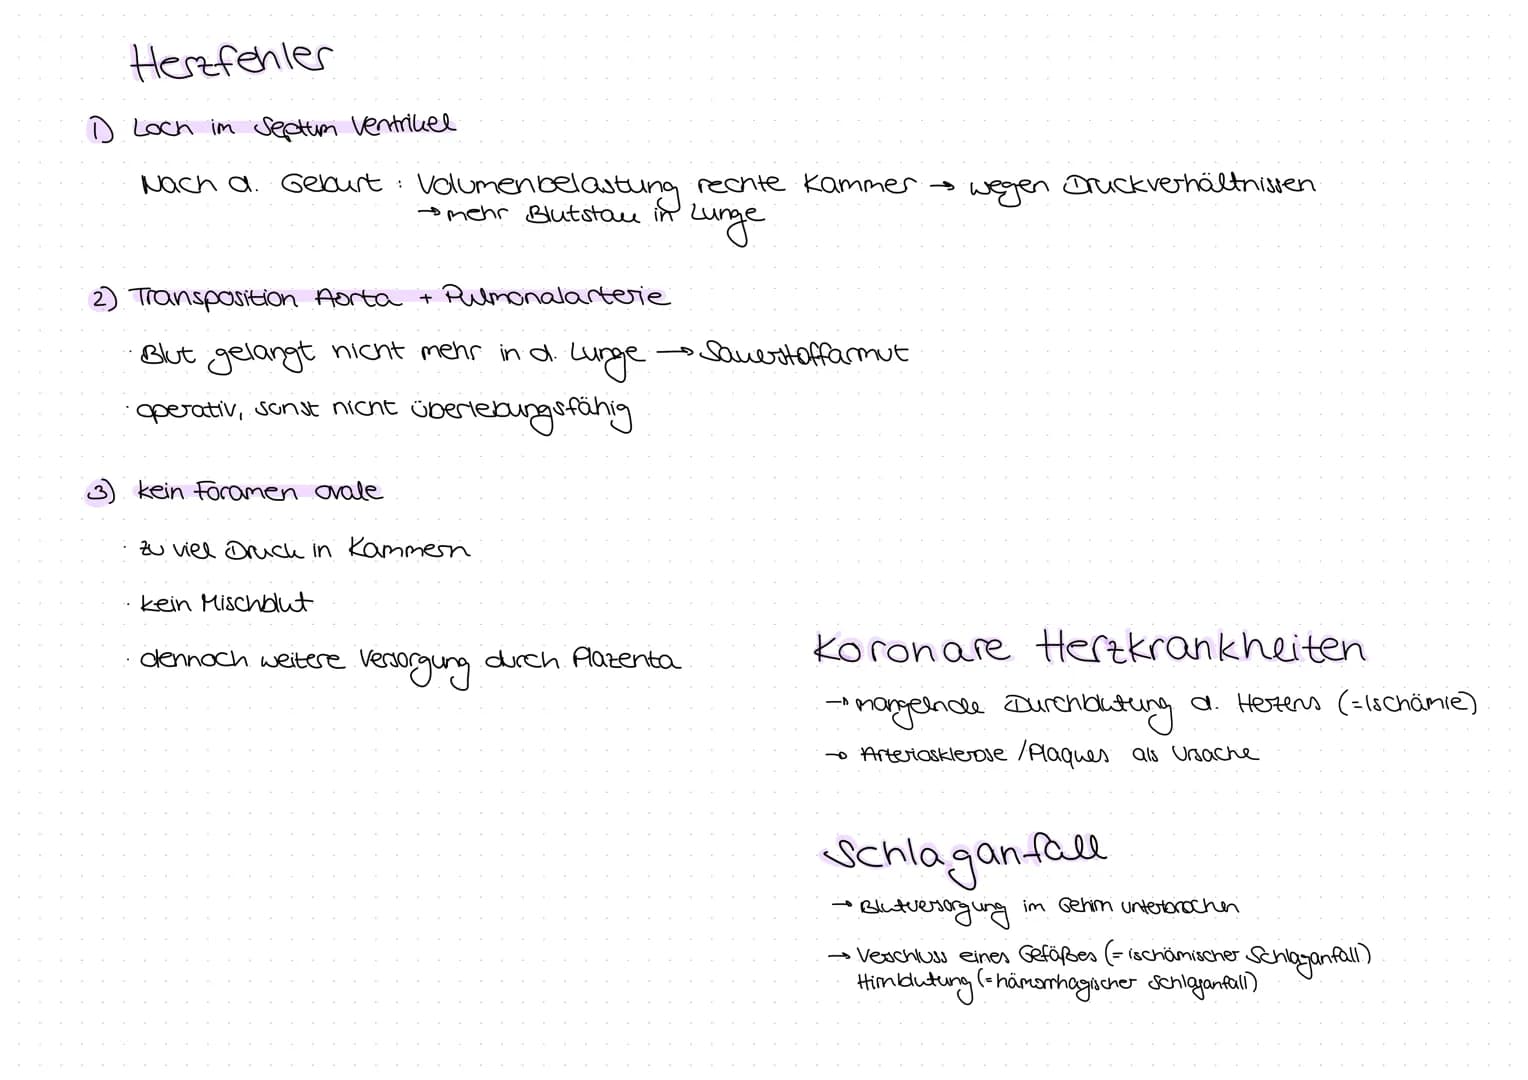 Herzfehler
1) Loch im Septum Ventrikel
Nach d. Geburt : Volumenbelastung rechte Kammer → wegen Druckverhältnissen
→ mehr Blutstau in Lunge
2) Transposition Aorta + Pulmonalarterie
· Blut gelangt nicht mehr in d. Lunge → Sauerstoffarmut
· operativ, sonst nicht überlebungsfähig
3) kein Foramen ovale
· zu viel Druck in Kammern
· kein Mischblut
· dennoch weitere Versorgung durch Plazenta
Koronare Herzkrankheiten
→ mangelnde Durchblutung d. Herzens (=Ischämie)
→ Arteriosklerose / Plaques als Ursache
Schlaganfall
→ Blutversorgung im Gehirn unterbrochen
→ Verschluss eines Gefäßes (= ischämischer Schlaganfall)
Hirnblutung (= hämorrhagischer Schlaganfall)